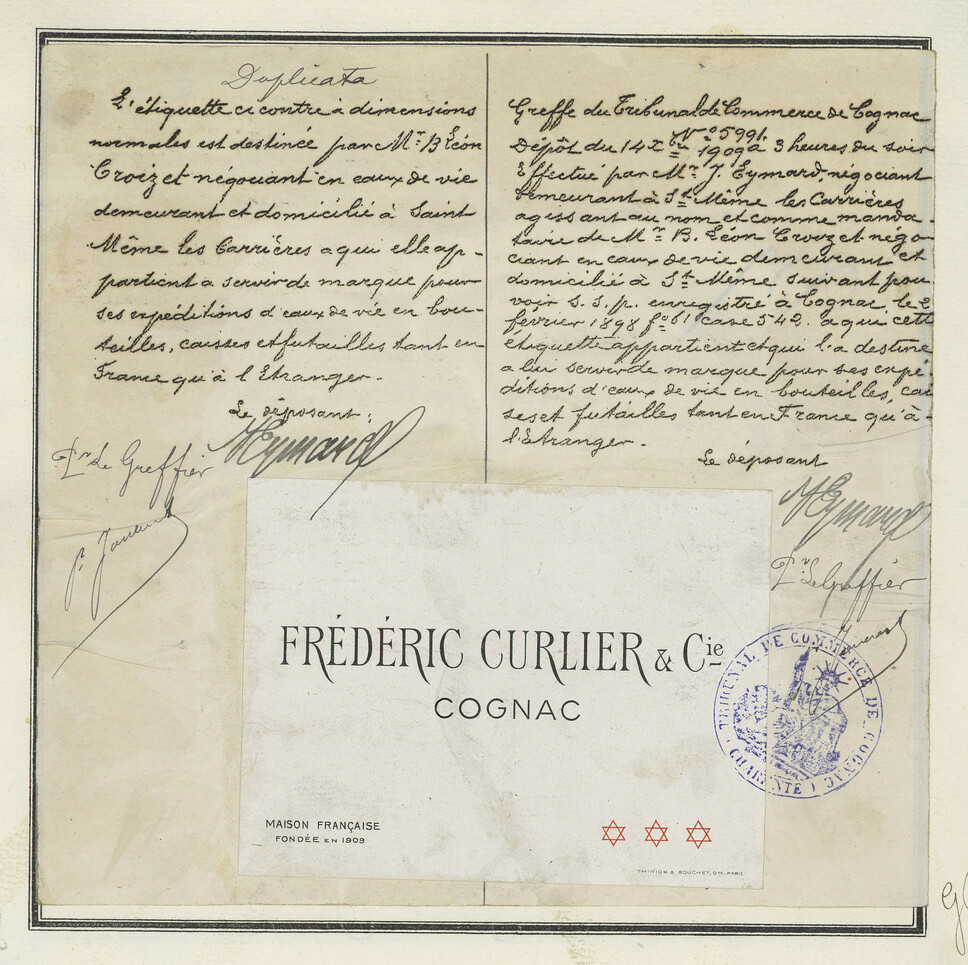 Duplicata
L'étiquette ci contre à dimensions
normales est destinée par Mr. B Léon
Croizet négociant en eaux de vie
demeurant et domicilié à Saint
Même les Carrières a qui elle ap-
partient a servir de marque pour
ses expéditions d'eaux de vie en bou-
teilles, caisses et futailles tant en
France qu'à l'Etranger.
Le déposant:
Pr. Le Greffier
Greffe du Tribunal de Commerce de Cognac
No 5991.
Dépôt du 14 Xbre 1909 à 3 heures du soir
Effectué par Mr. J. Eymard, négociant
demeurant à St Même les Carrières
agissant au nom et comme manda-
taire de Mr B. Léon Croizet négo-
ciant en eaux de vie demeurant et
domicilié à St Même suivant pou
voir s.s.p. enregistré à Cognac le 2
février 1898 fo 61 case 542. a qui cett
étiquette appartient et qui l'a destine
a lui servir de marque pour ses expé-
ditions d'eaux de vie en bouteilles, cai
ses et futailles tant en France qu'à-
l'Etranger.
Le déposant
Pr. Le Greffier
FRÉDÉRIC CURLIER & Cie
COGNAC
MAISON FRANÇAISE
FONDÉE EN 1909
THIRION & BOUCHET, GR. PARIS
TRIBUNAL DE COMMERCE DE COGNAC
(CHARENTE)